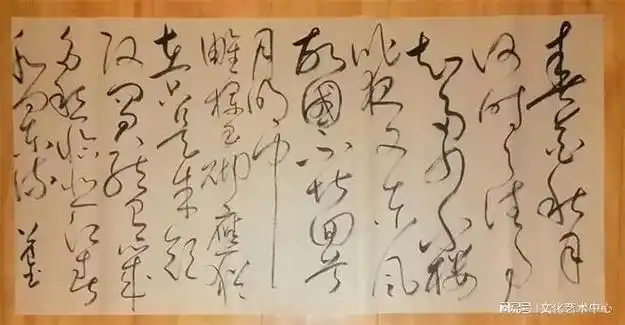 春花秋月
何时了往事
知多少小楼
昨夜又东风
故國不堪回首
月明中
雕栏玉砌應猶
在只是朱颜
改问君能有几
多愁恰似一江春
水向东流
网易号 | 文化艺术中心